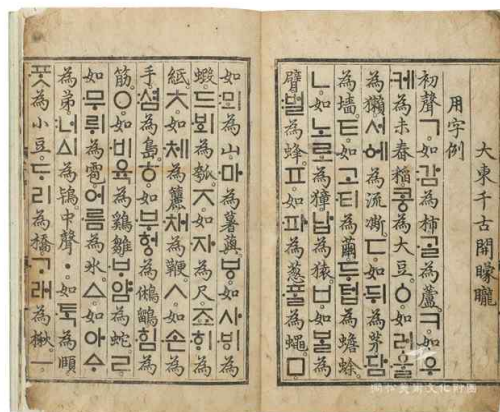 大東千古開朦朧
用字例
初聲ㄱ如감為柿ᄀᆞᆯ為蘆ㅋ如우
케為未舂稻콩為大豆ㆁ如러울
為獺서에為流凘ㄷ如뒤為茅담
為墙ㅌ如고티為繭두텁為蟾蜍
ㄴ如노로為獐납為猿ㅂ如ᄇᆞᆯ為
臂벌為蜂ㅍ如파為葱ᄑᆞᆯ為蠅ㅁ
如뫼為山마為薯藇ㅸ如사ᄫᅵ為
蝦드ᄫᅴ為瓠ㅈ如자為尺죠ᄒᆡ為
紙ㅊ如체為簏채為鞭ㅅ如손為
手셤為島ㅎ如부헝為鵂鶹힘為
筋ㅇ如비육為鷄雛ᄇᆞ얌為蛇ㄹ
如무뤼為雹어름為氷ㅿ如아ᅀᆞ
為弟너ᅀᅵ為鴇中聲ㆍ如ᄐᆞᆨ為頤
ᄑᆞᆺ為小豆ᄃᆞ리為橋ᄀᆞ래為楸ㅡ
澗松美術文化財團